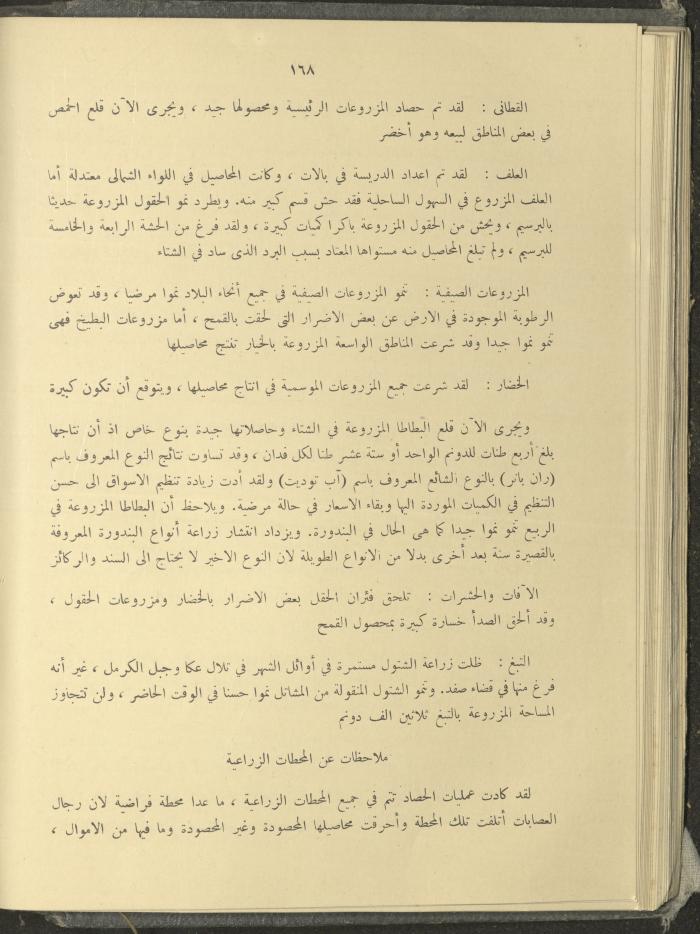 ١٦٨
القطانى : لقد تم حصاد المزروعات الرئيسية ومحصولها جيد ، ويجرى الآن قلع الحمص
في بعض المناطق لبيعه وهو أخضر
العلف : لقد تم اعداد الدريسة في بالات ، وكانت المحاصيل في اللواء الشمالى معتدلة أما
العلف المزروع في السهول الساحلية فقد حش قسم كبير منه. ويطرد نمو الحقول المزروعة حديثا
بالبرسيم ، ويحش من الحقول المزروعة باكرا كميات كبيرة ، ولقد فرغ من الحشة الرابعة والخامسة
للبرسيم ، ولم تبلغ المحاصيل منه مستواها المعتاد بسبب البرد الذى ساد في الشتاء
المزروعات الصيفية : تنمو المزروعات الصيفية في جميع أنحاء البلاد نموا مرضيا ، وقد تعوض
الرطوبة الموجودة في الارض عن بعض الاضرار التى لحقت بالقمح ، أما مزروعات البطيخ فهى
تنمو نموا جيدا وقد شرعت المناطق الواسعة المزروعة بالخيار تفتج محاصيلها
الخضار : لقد شرعت جميع المزروعات الموسمية في انتاج محاصيلها ، ويتوقع أن تكون كبيرة
ويجرى الآن قلع البطاطا المزروعة في الشتاء وحاصلاتها جيدة بنوع خاص اذ أن نتاجها
بلغ أربع طنات للدونم الواحد أو ستة عشر طنا لكل فدان ، وقد تساوت نتائج النوع المعروف باسم
(ران بانر) بالنوع الشائع المعروف باسم (آب توديت) ولقد أدت زيادة تنظيم الاسواق الى حسن
التنظيم في الكميات الموردة اليها وبقاء الاسعار في حالة مرضية. ويلاحظ أن البطاطا المزروعة في
الربيع تنمو نموا جيدا كما هى الحال في البندورة. ويزداد انتشار زراعة أنواع البندورة المعروفة
بالقصيرة سنة بعد أخرى بدلا من الانواع الطويلة لان النوع الاخير لا يحتاج الى السند والركائز
الآفات والحشرات : تلحق فئران الحقل بعض الاضرار بالخضار ومزروعات الحقول ،
وقد ألحق الصدأ خسارة كبيرة بمحصول القمح
التبغ : ظلت زراعة الشتول مستمرة في أوائل الشهر في تلال عكا وجبل الكرمل ، غير أنه
فرغ منها في قضاء صفد. وتنمو الشتول المنقولة من المشاتل نموا حسنا في الوقت الحاضر ، ولن تتجاوز
المساحة المزروعة بالتبغ ثلاثين الف دونم
ملاحظات عن المحطات الزراعية
لقد كادت عمليات الحصاد تتم في جميع المحطات الزراعية ، ما عدا محطة فراضية لان رجال
العصابات أتلفت تلك المحطة وأحرقت محاصيلها المحصودة وغير المحصودة وما فيها من الاموال ،